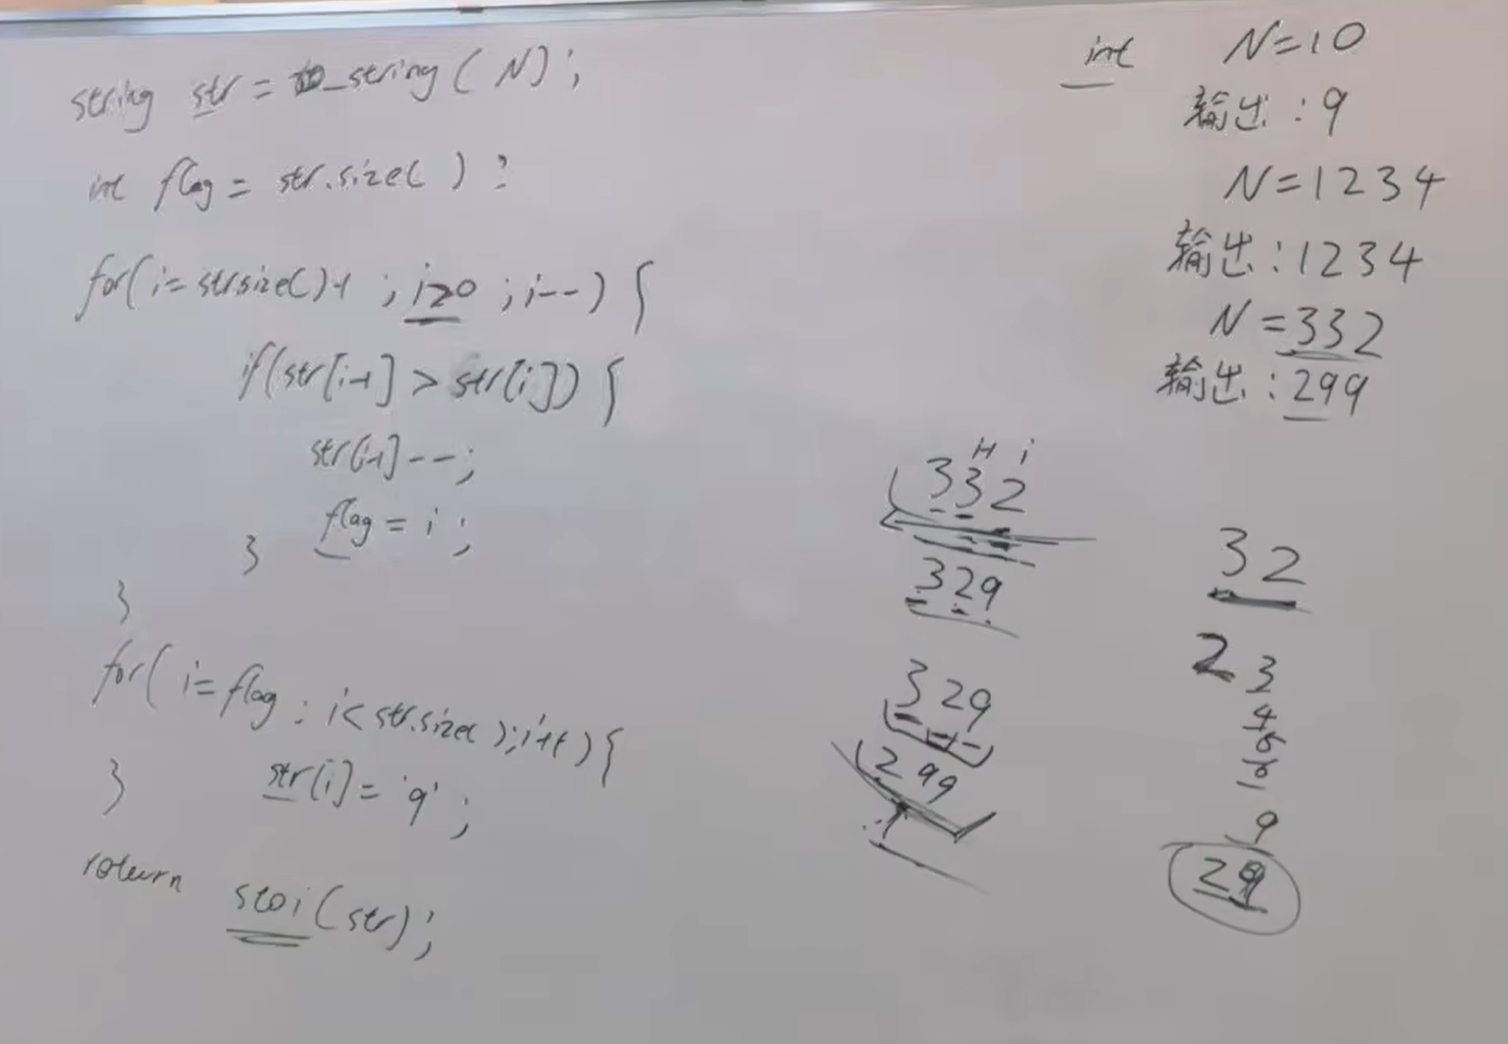 string str = to_string(N);
int flag = str.size();
for(i=str.size()-1 ; i>0 ; i--) {
if(str[i-1] > str[i]) {
str[i-1]--;
flag = i ;
}
}
for( i=flag ; i<str.size();i++){
str[i]= '9' ;
}
return stoi(str);
int N=10
输出:9
N=1234
输出:1234
N=332
输出:299
i-1 i
332
329
329
299
32
2 3
4
5
6
9
29